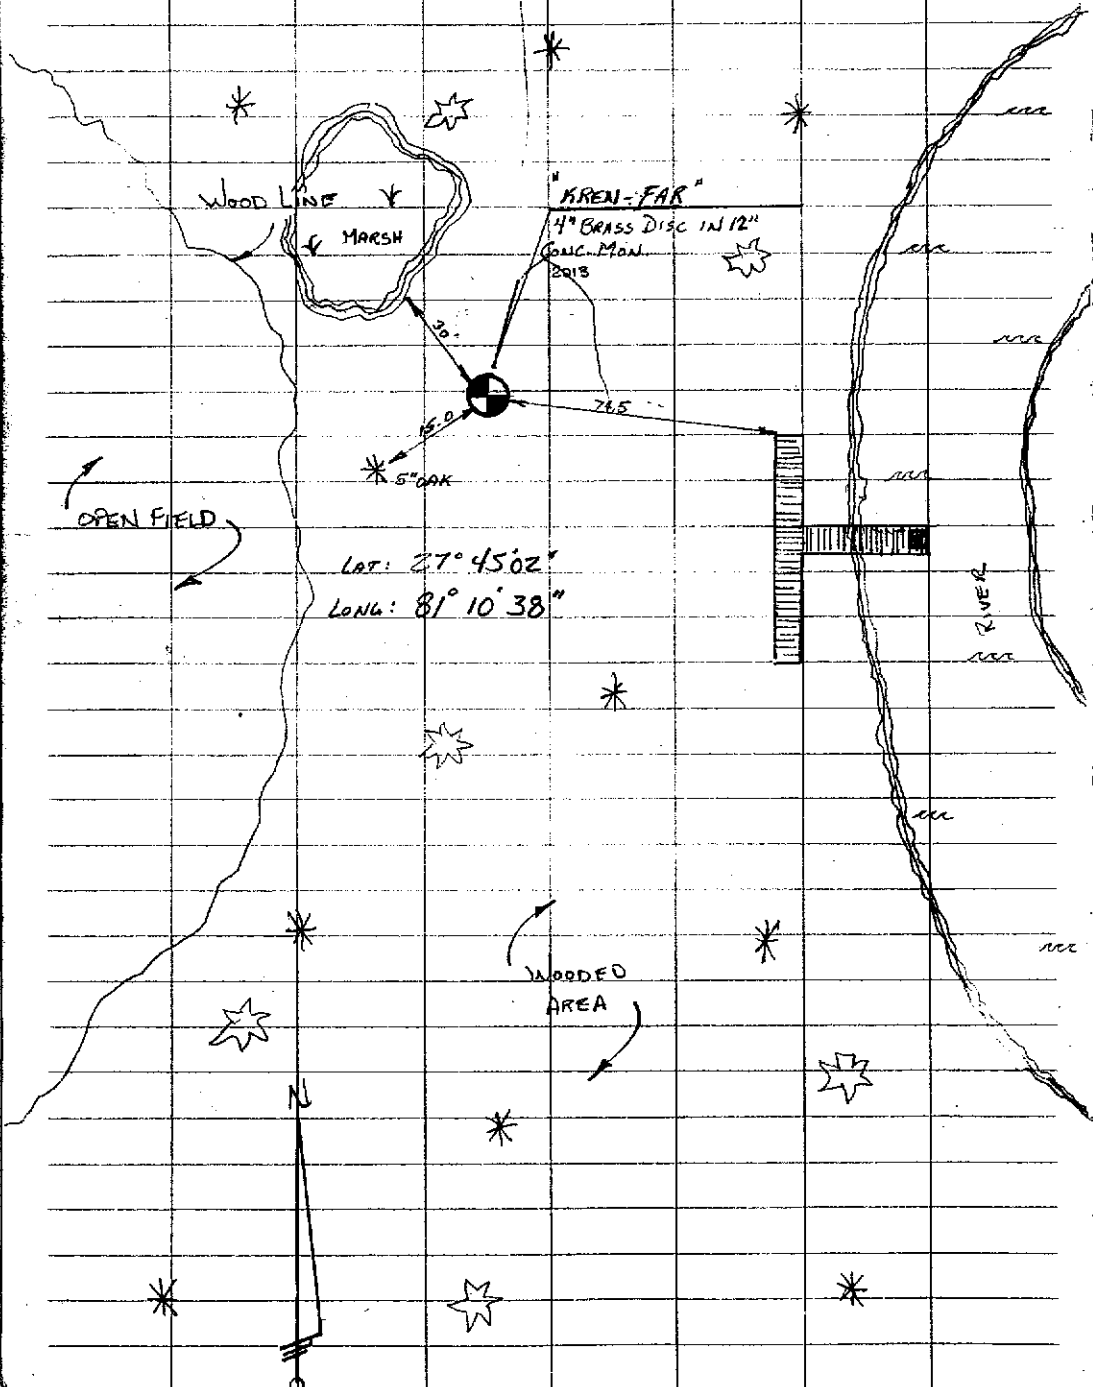 WOOD LINE
MARSH
"KREN-FAR"
4" BRASS DISC IN 12"
CONC. MON.
2013
30
15.0
5" OAK
OPEN FIELD
LAT: 27° 45' 02"
LONG: 81° 10' 38"
RIVER
WOODED
AREA
N